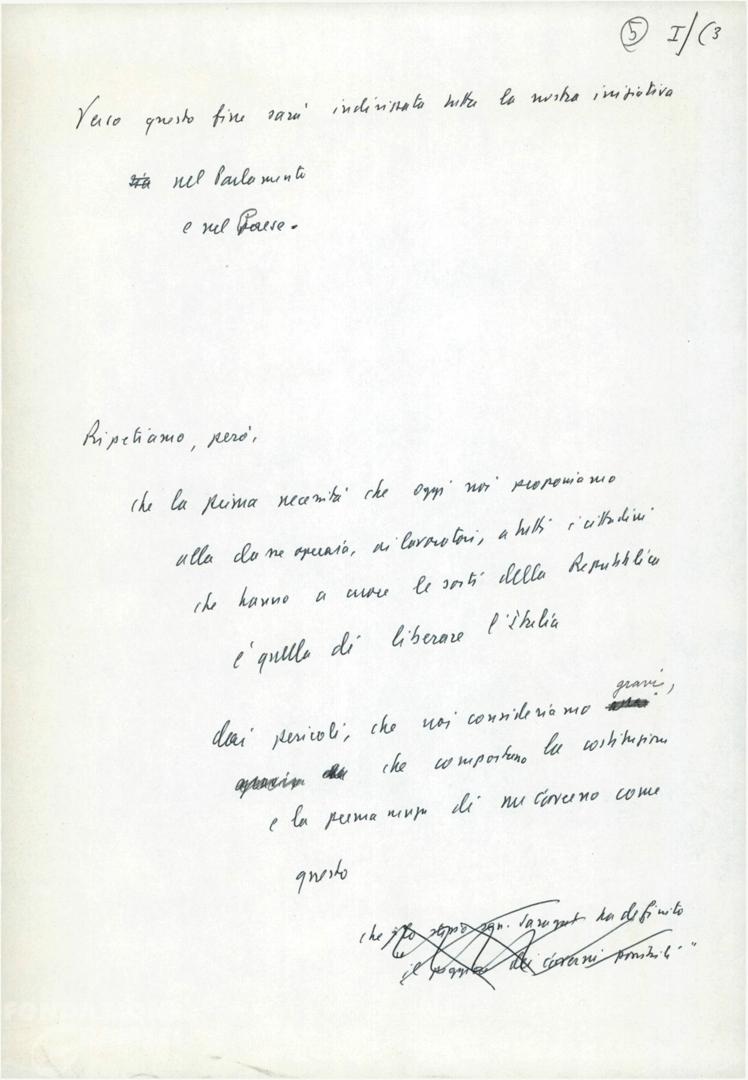 5 I/C3
Verso questo fine sarà indirizzata tutta la nostra iniziativa
sia nel Parlamento
e nel Paese.
Ripetiamo, però,
che la prima necessità che oggi noi proponiamo
alla classe operaia, ai lavoratori, a tutti i cittadini
che hanno a cuore le sorti della Repubblica
è quella di liberare l'Italia
gravi,
dai pericoli, che noi consideriamo
che comportano la costituzione
e la permanenza di un Governo come
questo
che lo stesso on. Saragat ha definito
il peggiore dei Governi possibili"